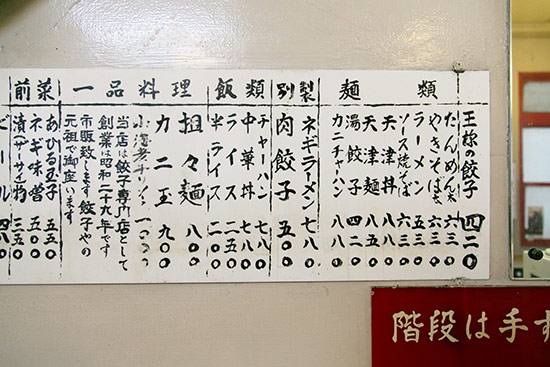 麺類
王様の餃子 四二〇
たんめん 六三〇
やきそば 六三〇
ラーメン 五三〇
ソース焼そば 六三〇
天津丼 八八〇
天津麺 八五〇
湯餃子 四二〇
カニチャーハン 八八〇
ネギラーメン 七八〇
別製
肉餃子 五〇〇
飯類
チャーハン 七八〇
中華丼 七八〇
ライス 二五〇
半ライス 二〇〇
一品料理
担々麺 八〇〇
カニ玉 九〇〇
小海老チリソース 一〇〇〇
当店は餃子専門店として
創業は昭和二十九年です
市販致します餃子やの
元祖で御座います
前菜
あひる玉子 五五〇
ネギ味噌 五〇〇
漬(ザーサイ)物 三五〇
ビール
階段は手す